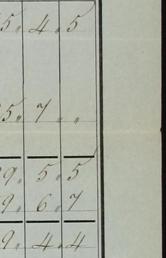 5 „ 4 „ 5
5 „ 7 „ „
9 „ 5 „ 5
9 „ 6 „ 7
9 „ 4 „ 4